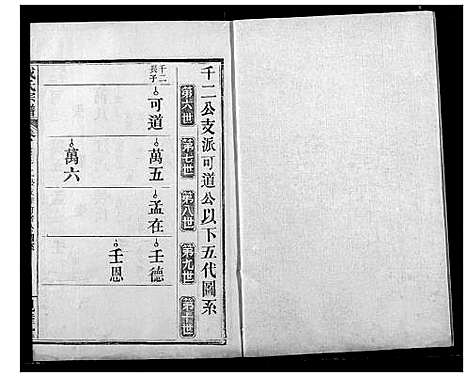 千二公支派可道公以下五代圖系
第六世
第七世
第八世
第九世
第十世
千二長子
可道
萬五
孟在
壬德
壬恩
萬六